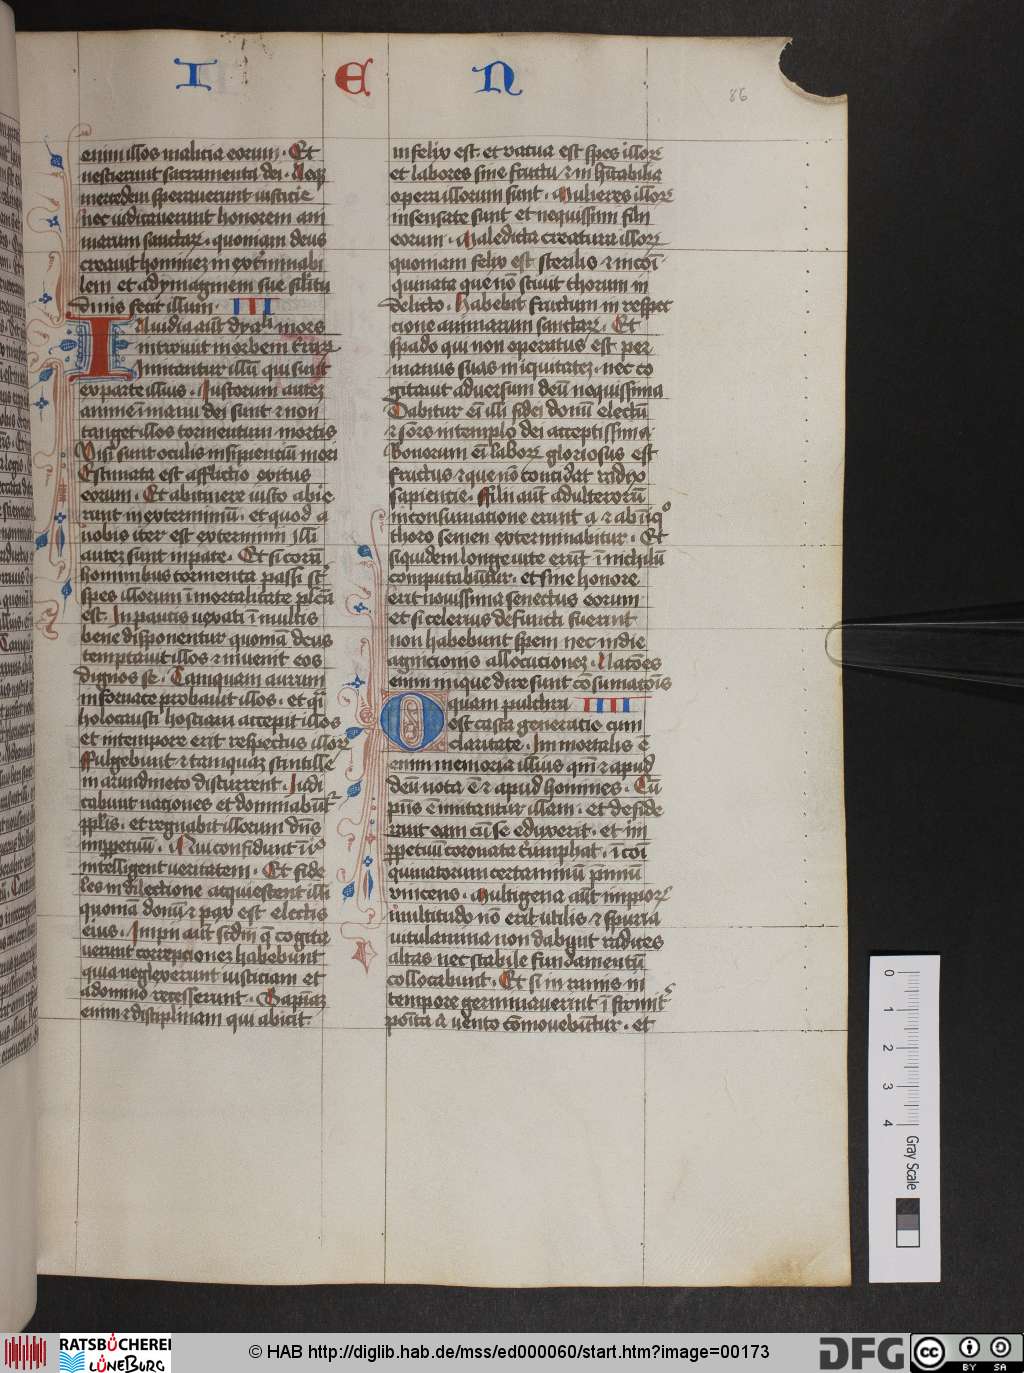 I E N
86
enim illos malicia eorum . Et
nescierunt sacramenta dei . Neqz
mercedem speraverunt iusticie
nec iudicaverunt honorem ani
marum sanctarz . quoniam deus
creavit hominez in extminabi
lem et ad ymaginem sue silitu
dinis fecit illum . III
Invidia aūt dyaboli mors
introivit in orbem trarz
Imitantur illū qui sunt
ex parte illius . Iustorum autez
anime ī manu dei sunt et non
tanget illos tormentum mortis
Visi sunt oculis insipientiū mori
Estimata est afflictio exitus
eorum . Et ab itinere iusto abie
runt in exterminiū . et quod a
nobis iter est exterminium illi
autez sunt in pace . Et si corā
hominibus tormenta passi st
spes illorum īmortalitate plēa
est . In paucis vexati ī multis
bene disponentur quoniā deus
temptavit illos et invenit eos
dignos se . Tamquam aurum
in fornace probavit illos . et qsi
holocausti hostiam accepit illos
et in tempore erit respectus illorz
Fulgebunt et tamquaz scintille
in arundineto discurrent . Iudi
cabunt naciones et dominabūt
pplis . et regnabit illorum dns
in ppetuū . Qui confidunt ī illo
intelligent veritatem . Et fide
les in dilectione acquiescent illi
quoniā donū et pax est electis
eius . Impii aūt scdm q cogita
verunt correpcionez habebunt
quia neglexerunt iusticiam et
a domino recesserunt . Sapiaz
enim et disciplinam qui abicit
infelix est . et vacua est spes illorz
et labores sine fructu et inhitabilia
opera illorum sunt . Mulieres illorz
insensate sunt et nequissimi filii
eorum . Maledicta creatura illorz
quoniam felix est sterilis et incoi
quinata que nō scivit thorum in
delicto . Habebit fructum in respec
cione animarum sanctarz . Et
spado qui non operatus est per
manus suas iniquitatez . nec co
gitavit adversum deū nequissima
Dabitur eī illi fidei donū electū
et sors in templo dei acceptissima
Bonorum eī laborz gloriosus est
fructus et que nō concidat radix
sapiencie . Filii aūt adulterorū
in consumacione erunt et ab iiqo
thoro semen exterminabitur . Et
si quidem longe vite erūt ī nichilū
computabūtur . et sine honore
erit novissima senectus eorum
et si celerius defuncti fuerint
non habebunt spem nec in die
agnicionis allocucionez . Nacōes
enim inique dire sunt cōsumacōis
O quam pulchra IIII
est casta generatio cum
claritate . Immortalis ē
enim memoria illius qm et apud
deū nota ē et apud homines . Cū
pns ē imitantur illam . et deside
rant eam cū se eduxerit . et in
ppetuū coronata triumphat . ī coi
quinatorum certaminū pmiū
vincens . Multigena aūt impiorz
multitudo nō erit utilis et spuria
vitulamina non dabunt radices
altas nec stabile fundamentū
collocabunt . Et si in ramis in
tempore germinaverint ī firmit
posita a vento cōmovebūtur . et
0 1 2 3 4
Gray Scale
RATSBÜCHEREI
LÜNEBURG
© HAB http://diglib.hab.de/mss/ed000060/start.htm?image=00173
DFG
cc BY SA